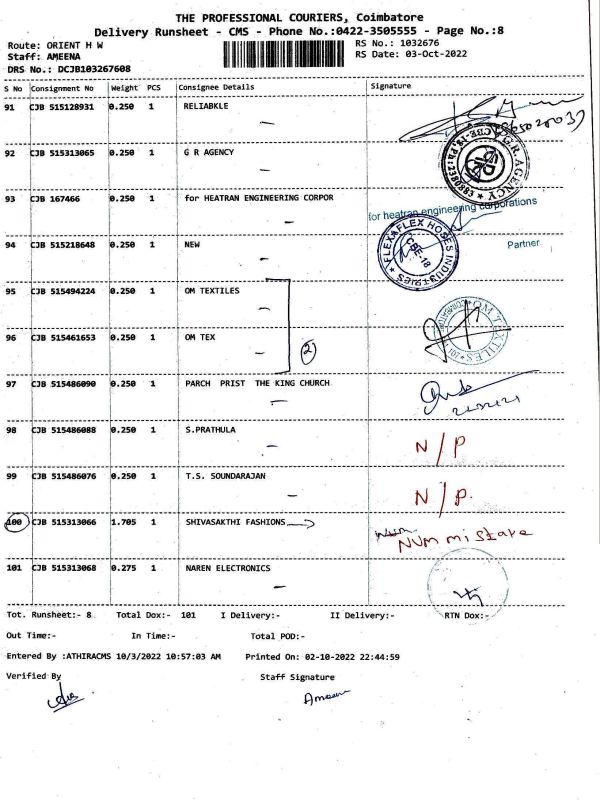 THE PROFESSIONAL COURIERS, Coimbatore
Delivery Runsheet - CMS - Phone No.:0422-3505555 - Page No.:8
Route: ORIENT H W RS No.: 1032676
Staff: AMEENA RS Date: 03-Oct-2022
DRS No.: DCJB103267608
S No Consignment No Weight PCS Consignee Details Signature
91 CJB 515128931 0.250 1 RELIABKLE
92 CJB 515313065 0.250 1 G R AGENCY
G.R. AGENCY
93 CJB 167466 0.250 1 for HEATRAN ENGINEERING CORPOR
for heatran engineering corporations
Partner
94 CJB 515218648 0.250 1 NEW
FLEXAFLEX HOSES INDUSTRIES
CBE-18
95 CJB 515494224 0.250 1 OM TEXTILES
96 CJB 515461653 0.250 1 OM TEX
2
OM TEXTILES
97 CJB 515486090 0.250 1 PARCH PRIST THE KING CHURCH
98 CJB 515486088 0.250 1 S.PRATHULA N/P
99 CJB 515486076 0.250 1 T.S. SOUNDARAJAN N/P.
100 CJB 515313066 1.705 1 SHIVASAKTHI FASHIONS NUM mistake
101 CJB 515313068 0.275 1 NAREN ELECTRONICS
Tot. Runsheet:- 8 Total Dox:- 101 I Delivery:- II Delivery:- RTN Dox:-
Out Time:- In Time:- Total POD:-
Entered By :ATHIRACMS 10/3/2022 10:57:03 AM Printed On: 02-10-2022 22:44:59
Verified By Staff Signature
Ameen